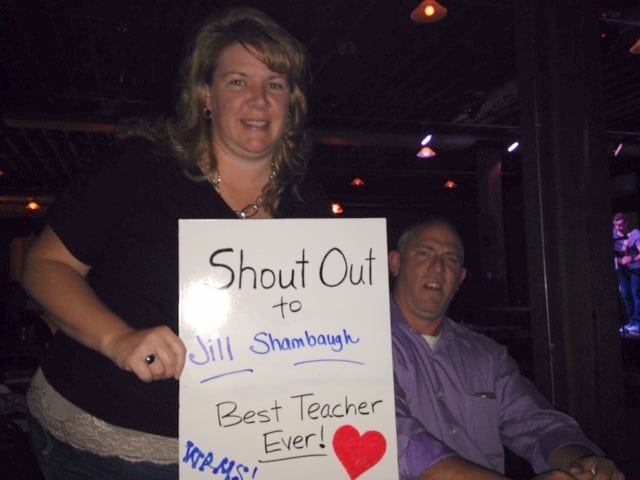 Shout Out
to
Jill Shambaugh
Best Teacher
Ever!
WRMS!